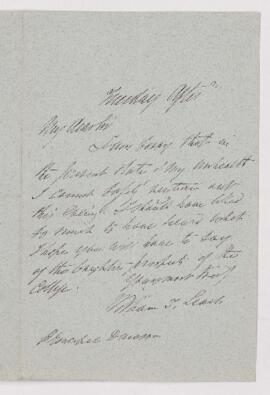 Tuesday Aftn
My dear Sir
I am sorry that in
the present state of my health
I cannot venture out
this evening. I should have liked
to have heard what
I hope you will have to say
of the brighter prospects of the
College.
Yours most truly
William T. Leach
Principal Dawson